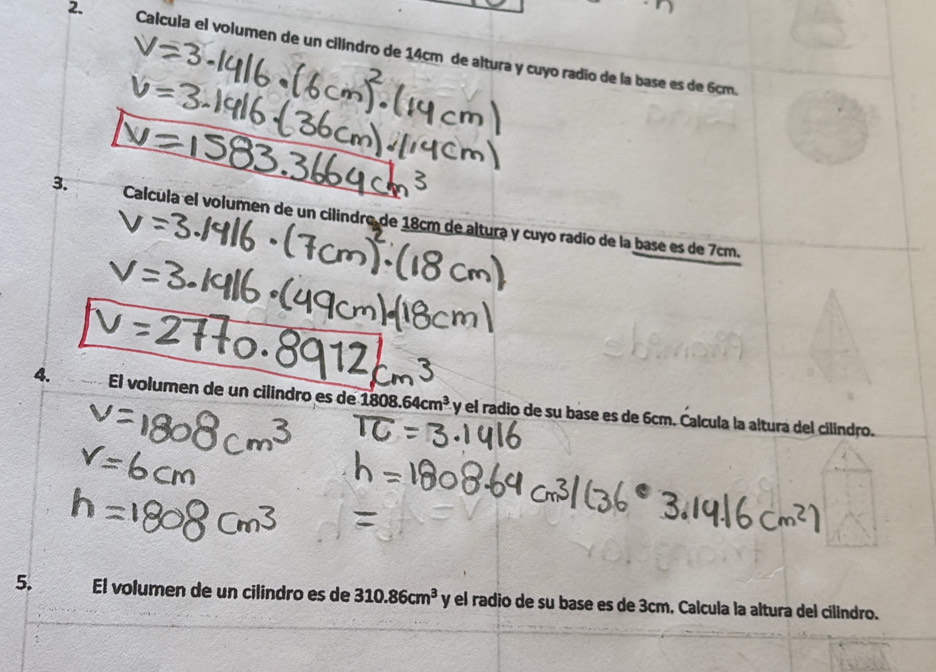 2. Calcula el volumen de un cilindro de 14cm de altura y cuyo radio de la base es de 6cm.
V=3.1416.(6cm)².(14cm)
V=3.1416.(36cm).(14cm)
V=1583.3664cm³
3. Calcula el volumen de un cilindro de 18cm de altura y cuyo radio de la base es de 7cm.
V=3.1416.(7cm)².(18cm)
V=3.1416.(49cm).(18cm)
V=2770.8912cm³
4. El volumen de un cilindro es de 1808.64cm³ y el radio de su base es de 6cm. Calcula la altura del cilindro.
V=1808cm³ π=3.1416
r=6cm h=1808.64cm³/(36•3.1416cm²)
h=1808cm³ =
5. El volumen de un cilindro es de 310.86cm³ y el radio de su base es de 3cm. Calcula la altura del cilindro.